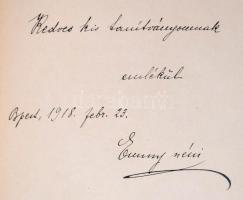 Kedves kis tanítványomnak
emlékül
Bpest, 1918. febr. 23.
Emmy néni